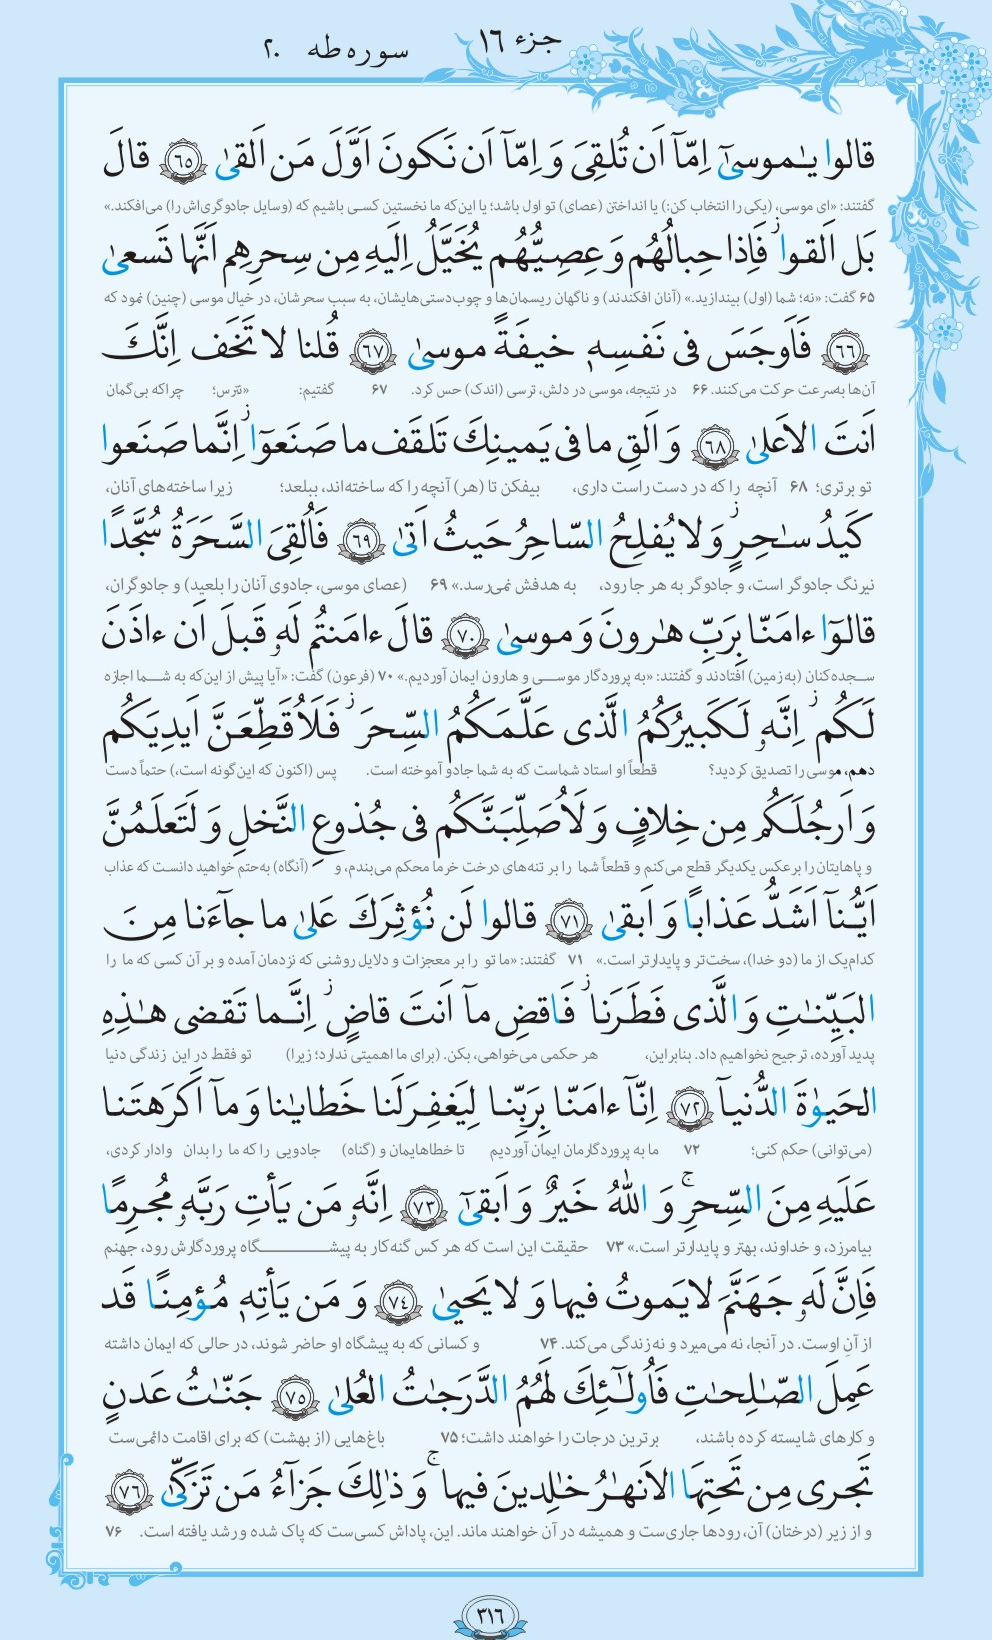 جزء ۱۶
سوره طه ۲۰
قالوا یـٰموسىٰٓ اِمّآ اَن تُلقِىَ وَ اِمّآ اَن نَكونَ اَوَّلَ مَن اَلقىٰ ﴿٦٥﴾ قالَ
گفتند: «ای موسی، (یکی را انتخاب کن:) یا انداختن (عصای) تو اول باشد؛ یا این‌که ما نخستین کسـی باشیم که (وسایل جادوگری‌اش را) می‌افکند.»
بَل اَلقوا ۖز فَاِذا حِبالُهُم وَ عِصِيُّهُم يُخَيَّلُ اِلَيهِ مِن سِحرِهِم اَنَّها تَسعىٰ
۶۵ گفت: «نه؛ شما (اول) بیندازید.» (آنان افکندند) و ناگهان ریسمان‌ها و چوب‌دستی‌هایشان، به سبب سحرشان، در خیال موسی (چنین) نمود که
﴿٦٦﴾ فَاَوجَسَ فى نَفسِهٖ خيفَةً موسىٰ ﴿٦٧﴾ قُلنا لا تَخَف اِنَّكَ
آن‌ها به‌سرعت حرکت می‌کنند. ۶۶ در نتیجه، موسی در دلش، ترسی (اندک) حس کرد. ۶۷ گفتیم: «نترس؛ چراکه بی‌گمان
اَنتَ الاَعلىٰ ﴿٦٨﴾ وَ اَلقِ ما فى يَمينِكَ تَلقَف ما صَنَعوٓا ز اِنَّما صَنَعوا
تو برتری؛ ۶۸ آنچه را که در دست راست داری، بیفکن تا (هر) آنچه را که ساخته‌اند، ببلعد؛ زیرا ساخته‌های آنان،
كَيدُ سـٰحِرٍ ز وَ لا يُفلِحُ السّاحِرُ حَيثُ اَتىٰ ﴿٦٩﴾ فَاُلقِىَ السَّحَرَةُ سُجَّدًا
نیرنگ جادوگر است، و جادوگر به هر جا رود، به هدفش نمی‌رسد.» ۶۹ (عصای موسی، جادوی آنان را بلعید) و جادوگران،
قالوٓا ءامَنّا بِرَبِّ هـٰرونَ وَ موسىٰ ﴿٧٠﴾ قالَ ءامَنتُم لَهٗ قَبلَ اَن ءاذَنَ
سـجده‌کنان (به زمین) افتادند و گفتند: «به پروردگار موســی و هارون ایمان آوردیم.» ۷۰ (فرعون) گفت: «آیا پیش از این‌که به شـما اجازه
لَكُم ز اِنَّهٗ لَكَبيرُكُمُ الَّذى عَلَّمَكُمُ السِّحرَ ز فَلَاُقَطِّعَنَّ اَيدِيَكُم
دهم، موسی را تصدیق کردید؟ قطعاً او استاد شماست که به شما جادو آموخته است. پس (اکنون که این‌گونه است،) حتماً دست
وَ اَرجُلَكُم مِن خِلافٍ وَ لَاُصَلِّبَنَّكُم فى جُذوعِ النَّخلِ وَ لَتَعلَمُنَّ
و پاهایتان را برعکس یکدیگر قطع می‌کنم و قطعاً شما را بر تنه‌های درخت خرما محکم می‌بندم، و (آنگاه) به‌حتم خواهید دانست که عذاب
اَيُّنآ اَشَدُّ عَذابًا وَ اَبقىٰ ﴿٧١﴾ قالوا لَن نُؤثِرَكَ عَلىٰ ما جآءَنا مِنَ
کدام‌یک از ما (دو خدا)، سخت‌تر و پایدارتر است.» ۷۱ گفتند: «ما تو را بر معجزات و دلایل روشنی که نزدمان آمده و بر آن کسی که ما را
البَيِّنـٰتِ وَ الَّذى فَطَرَنا ز فَاقضِ مآ اَنتَ قاضٍ ز اِنَّما تَقضى هـٰذِهِ
پدید آورده، ترجیح نخواهیم داد. بنابراین، هر حکمی می‌خواهی، بکن. (برای ما اهمیتی ندارد؛ زیرا) تو فقط در این زندگی دنیا
الحَيوٰةَ الدُّنيآ ﴿٧٢﴾ اِنّآ ءامَنّا بِرَبِّنا لِيَغفِرَ لَنا خَطايـٰنا وَ مآ اَكرَهتَنا
(می‌توانی) حکم کنی؛ ۷۲ ما به پروردگارمان ایمان آوردیم تا خطاهایمان و (گناه) جادویی را که ما را بدان وادار کردی،
عَلَيهِ مِنَ السِّحرِ ج وَ اللهُ خَيرٌ وَ اَبقىٰٓ ﴿٧٣﴾ اِنَّهٗ مَن يَأتِ رَبَّهٗ مُجرِمًا
بیامرزد، و خداوند، بهتر و پایدارتر است.» ۷۳ حقیقت این است که هر کس گنه‌کار به پیشـــگاه پروردگارش رود، جهنم
فَاِنَّ لَهٗ جَهَنَّمَ لا يَموتُ فيها وَ لا يَحيىٰ ﴿٧٤﴾ وَ مَن يَأتِهٖ مُؤمِنًا قَد
از آنِ اوست. در آنجا، نه می‌میرد و نه زندگی می‌کند. ۷۴ و کسانی که به پیشگاه او حاضر شوند، در حالی که ایمان داشته
عَمِلَ الصّـٰلِحـٰتِ فَاُولـٰٓئِكَ لَهُمُ الدَّرَجـٰتُ العُلىٰ ﴿٧٥﴾ جَنّـٰتُ عَدنٍ
و کارهای شایسته کرده باشند، برترین درجات را خواهند داشت؛ ۷۵ باغ‌هایی (از بهشت) که برای اقامت دائمی‌ست
تَجرى مِن تَحتِهَا الاَنهـٰرُ خـٰلِدينَ فيها ج وَ ذٰلِكَ جَزآءُ مَن تَزَكّىٰ ﴿٧٦﴾
و از زیر (درختان) آن، رودها جاری‌ست و همیشه در آن خواهند ماند. این، پاداش کسی‌ست که پاک شده و رشد یافته است. ۷۶
۳۱۶